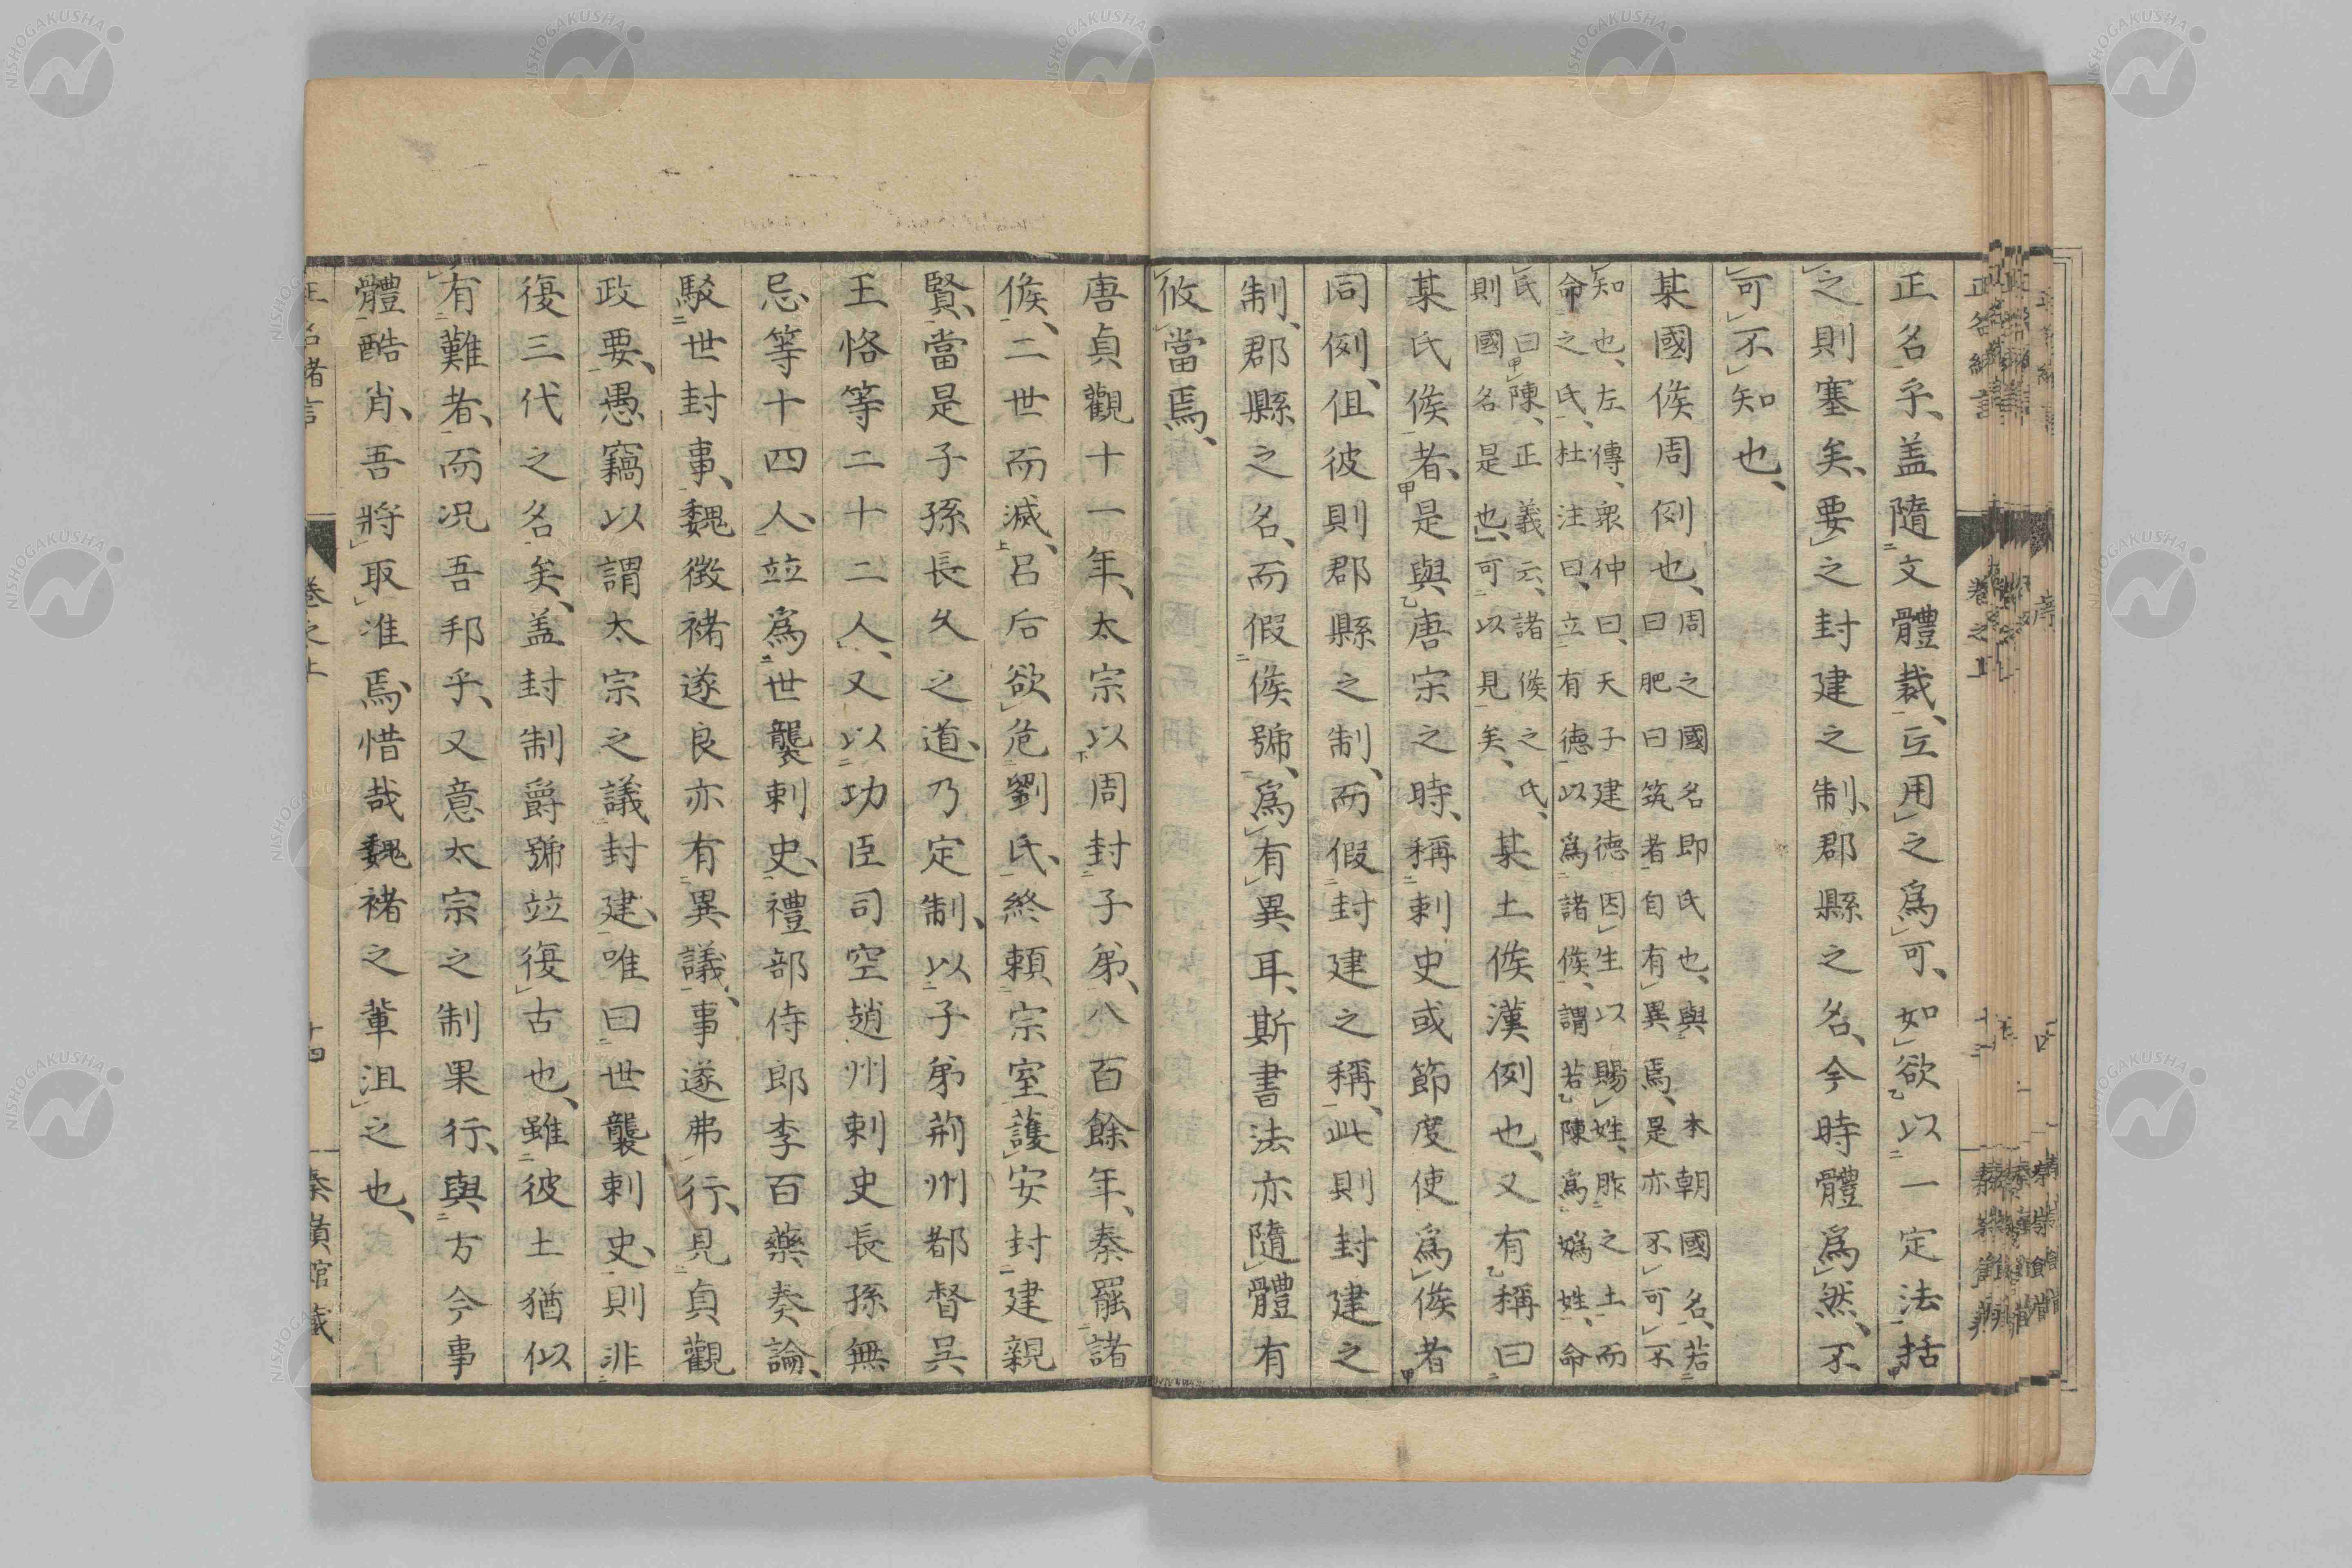 正名乎、盖隨文體裁、互用之爲可、如欲以一定法括
之則塞矣、要之封建之制、郡縣之名、今時體爲然、不
可不知也、
某國侯周例也、周之國名即氏也、與本朝國名、若
曰肥曰筑者自有異焉、是亦不可不
知也、左傳、衆仲曰、天子建德因生以賜姓、胙之土而
命之氏、杜注曰、立有德以爲諸侯、謂若陳爲嬀姓、命
氏曰陳、正義云、諸侯之氏、
則國名是也、可以見矣、
某土侯漢例也、又有稱曰
某氏侯者、是與唐宋之時、稱刺史或節度使爲侯者
同例、但彼則郡縣之制、而假封建之稱、此則封建之
制、郡縣之名、而假侯號、爲有異耳、斯書法亦隨體有
攸當焉、
唐貞觀十一年、太宗以周封子弟、八百餘年、秦罷諸
侯、二世而滅、呂后欲危劉氏、終賴宗室、護安封建親
賢、當是子孫長久之道、乃定制、以子弟荊州都督吳
王恪等二十二人、又以功臣司空趙州刺史長孫無
忌等十四人、竝爲世襲刺史、禮部侍郎李百藥奏論、
駁世封事、魏徵褚遂良亦有異議、事遂弗行、見貞觀
政要、愚竊以謂太宗之議封建、唯曰世襲刺史、則非
復三代之名矣、盖封制爵號竝復古也、雖彼土猶似
有難者、而况吾邦乎、又意太宗之制果行、與方今事
體酷肖、吾將取准焉、惜哉魏褚之輩沮之也、
正名緒言 卷之上 十四